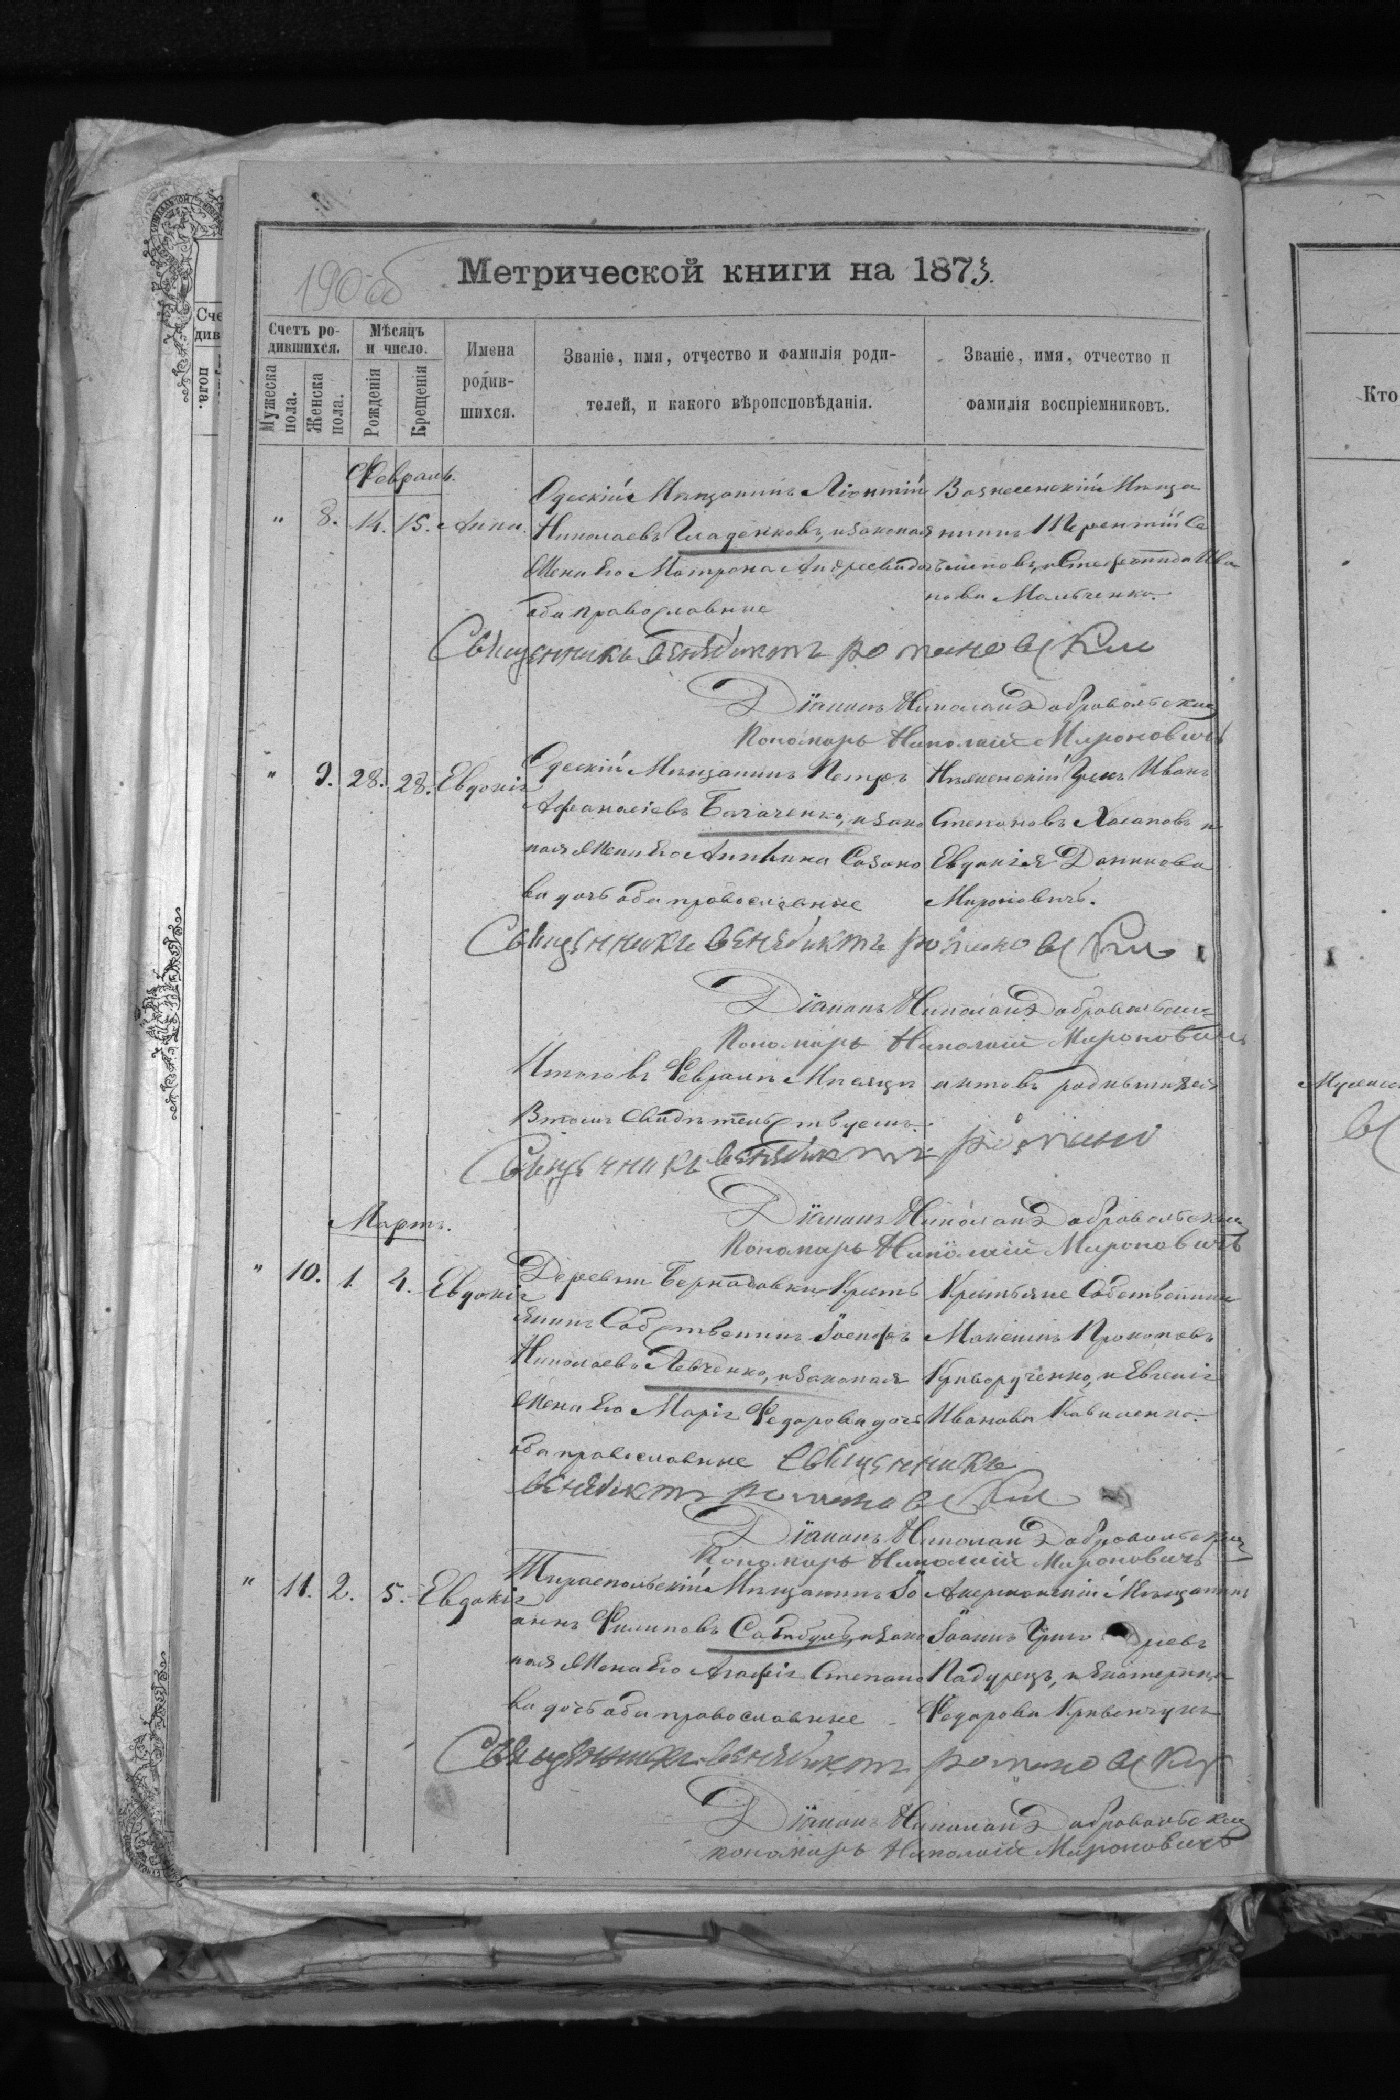 190 об
Метрической книги на 1873.
Счетъ ро-
дившихся.
Мѣсяцъ
и число.
Имена
родив-
шихся.
Званіе, имя, отчество и фамилія роди-
телей, и какого вѣроисповѣданія.
Званіе, имя, отчество и
фамилія воспріемниковъ.
Мужеска
пола.
Женска
пола.
Рожденія
Крещенія
Февраль.
" 8. 14. 15. Анна.
Одескій Мѣщанинъ Леонтій
Николаевъ Гладенковъ, и законая
Жена Его Матрона Андреева дочь
оба православные
Вознесенскій Мѣща
нинъ Терентій Се
Ива
нова Мальченко.
Священникъ Венедиктъ Романовскій
Діаконъ Николай Добровольскій
Пономарь Николай Мироновичъ
" 9. 28. 28. Евдокія
Одескій Мѣщанинъ Петръ
Афанасіевъ Багаченко, и зако
ная Жена Его Созоно
ва дочь оба православные
Нѣженскій Грекъ Иванъ
Степановъ Хасаповъ и
Евдокія Данилова
Мироновичъ.
Священникъ Венедиктъ Романовскій
Діаконъ Николай Добровольскій
Пономарь Николай Мироновичъ
Итого въ Февралѣ Мѣсяцѣ актовъ родившихся
В томъ свидѣтельствуемъ.
Священникъ Венедиктъ Романо
Діаконъ Николай Добровольскій
Пономарь Николай Мироновичъ
Мартъ.
" 10. 1. 4. Евдокія
Деревни Бернадовки Кресть
янинъ Собственникъ Іосифъ
Николаевъ Левченко, и законая
Жена Его Марія Федорова дочь
оба православные Священникъ
Крестьяне Собственники
Максимъ Прокопіевъ
Криворученко, и Евгенія
Иванова Коваленко.
Венедиктъ Романовскій
Діаконъ Николай Добровольскій
Пономарь Николай Мироновичъ
" 11. 2. 5. Евдокія
Тираспольскій Мѣщанинъ Іо
аннъ Филиповъ и зако
ная Жена Его Агафія Степано
ва дочь оба православные
Акерманскій Мѣщанинъ
Іоаннъ Григорьевъ
Падурецъ, и Екатерина
Федорова
Священникъ Венедиктъ Романовскій
Діаконъ Николай Добровольскій
пономарь Николай Мироновичъ
Кто